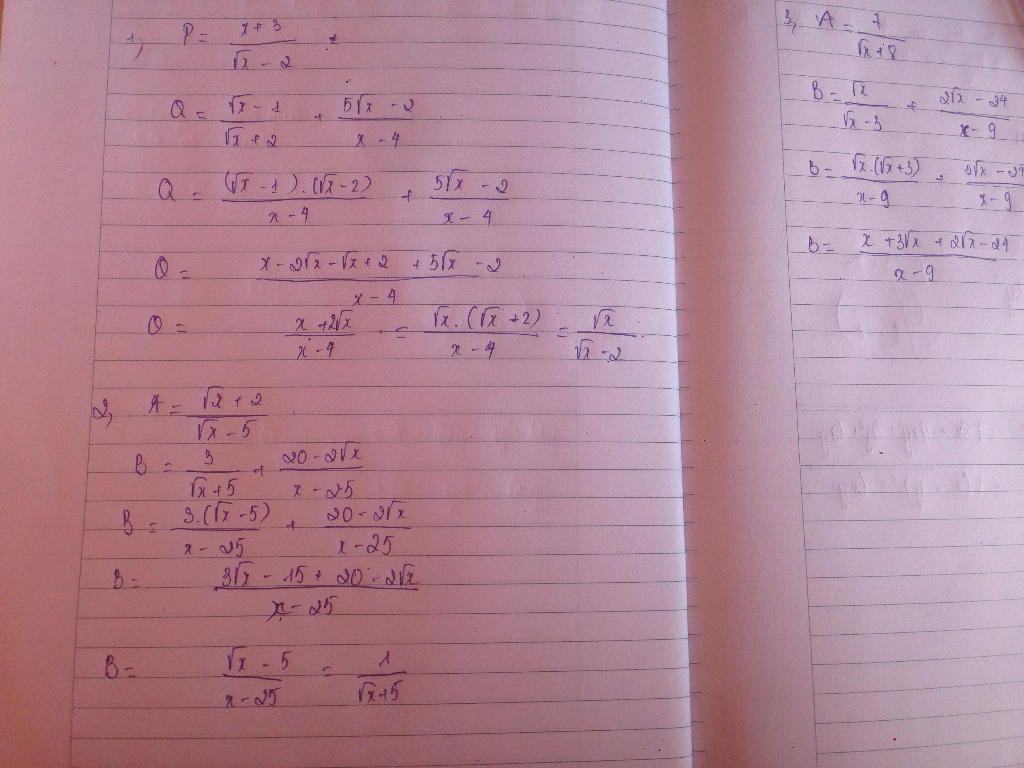 1) P = (x + 3)/(√x - 2)
Q = (√x - 1)/(√x + 2) + (5√x - 2)/(x - 4)
Q = ((√x - 1).(√x - 2))/(x - 4) + (5√x - 2)/(x - 4)
Q = (x - 2√x - √x + 2 + 5√x - 2)/(x - 4)
Q = (x + 2√x)/(x - 4) = (√x.(√x + 2))/(x - 4) = √x/(√x - 2)
2, A = (√x + 2)/(√x - 5)
B = 3/(√x + 5) + (20 - 2√x)/(x - 25)
B = (3.(√x - 5))/(x - 25) + (20 - 2√x)/(x - 25)
B = (3√x - 15 + 20 - 2√x)/(x - 25)
B = (√x - 5)/(x - 25) = 1/(√x + 5)
3, A = 7/(√x + 8)
B = √x/(√x - 3) + (2√x - 24)/(x - 9)
B = (√x.(√x + 3))/(x - 9) + (2√x - 24)/(x - 9)
B = (x + 3√x + 2√x - 24)/(x - 9)